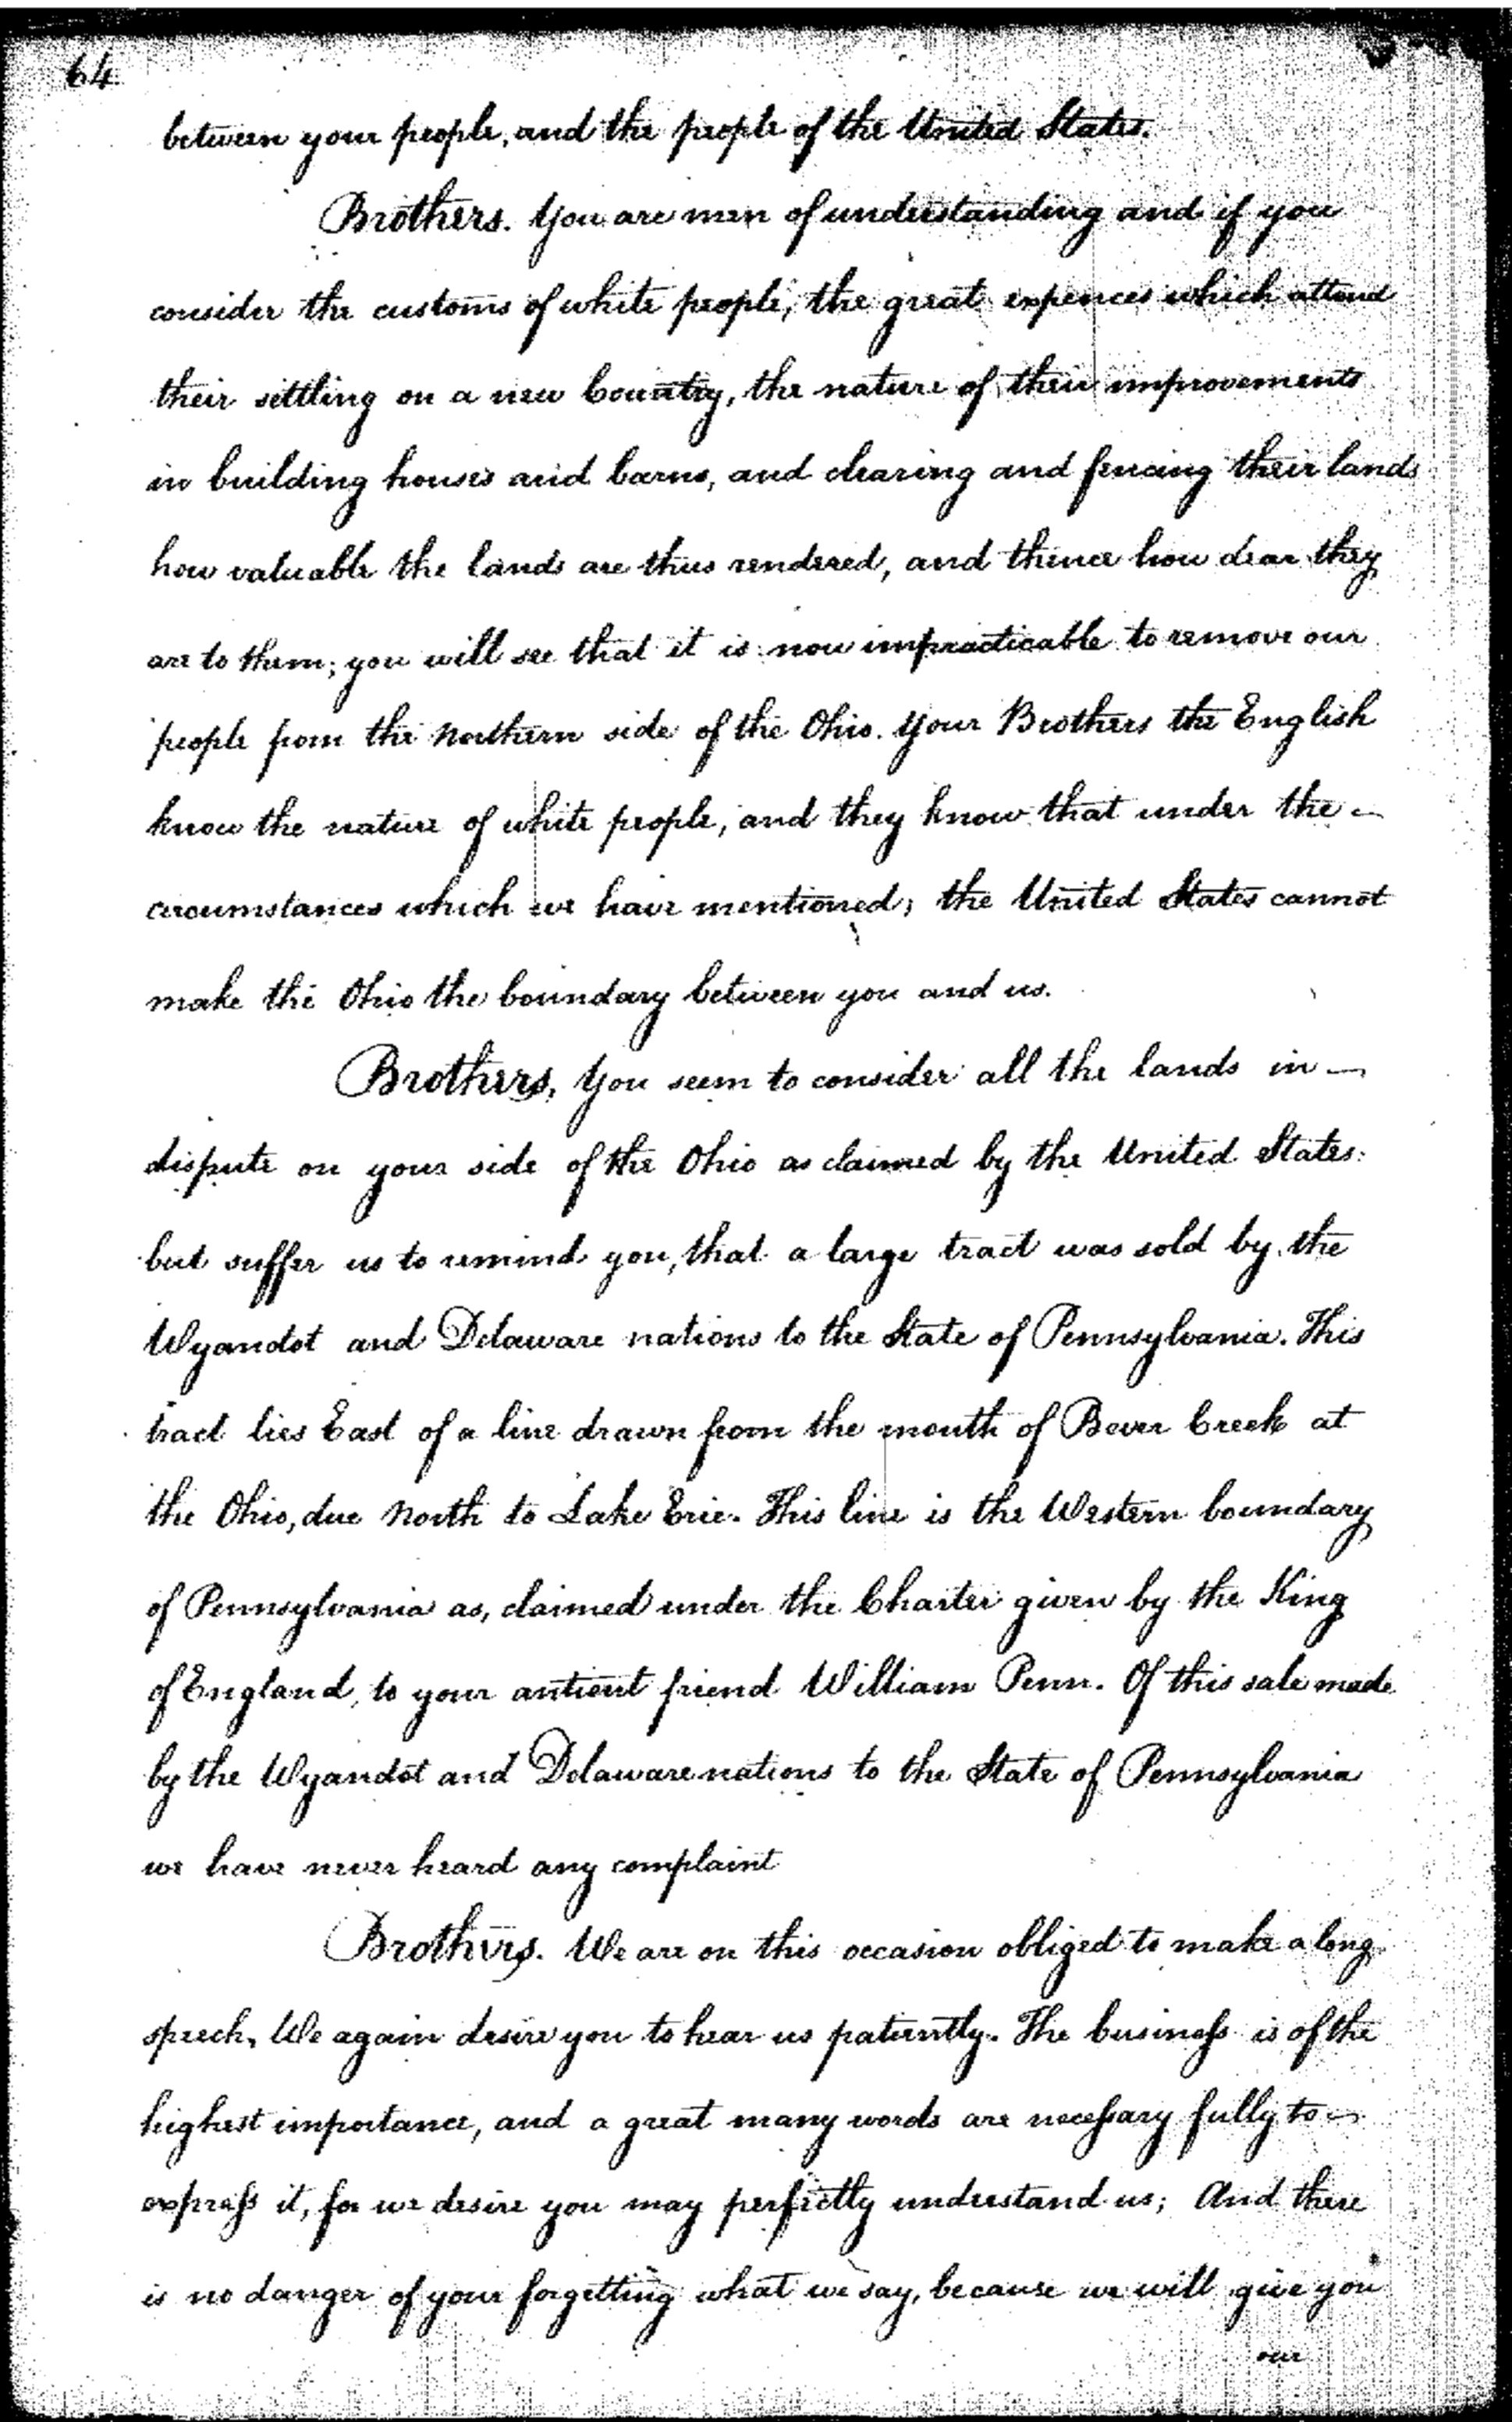 64
between your people, and the people of the United States.
Brothers. You are men of understanding and if you
consider the customs of white people, the great expences which attend
their settling on a new Country, the nature of their improvements
in building houses and barns, and clearing and fencing their lands
how valuable the lands are thus rendered, and thence how dear they
are to them; you will see that it is now impracticable to remove our
people from the Northern side of the Ohio. Your Brothers the English
know the nature of white people, and they know that under the
circumstances which we have mentioned; the United States cannot
make the Ohio the boundary between you and us.
Brothers, You seem to consider all the lands in
dispute on your side of the Ohio as claimed by the United States:
but suffer us to remind you, that a large tract was sold by the
Wyandot and Delaware nations to the State of Pennsylvania. This
tract lies East of a line drawn from the mouth of Bever Creek at
the Ohio, due North to Lake Erie. This line is the Western boundary
of Pennsylvania as, claimed under the Charter given by the King
of England, to your antient friend William Penn. Of this sale made
by the Wyandot and Delaware nations to the State of Pennsylvania
we have never heard any complaint
Brothers. We are on this occasion obliged to make a long
speech, We again desire you to hear us patiently. The business is of the
highest importance, and a great many words are necessary fully to
express it, for we desire you may perfectly understand us; And there
is no danger of your forgetting what we say, because we will give you
our